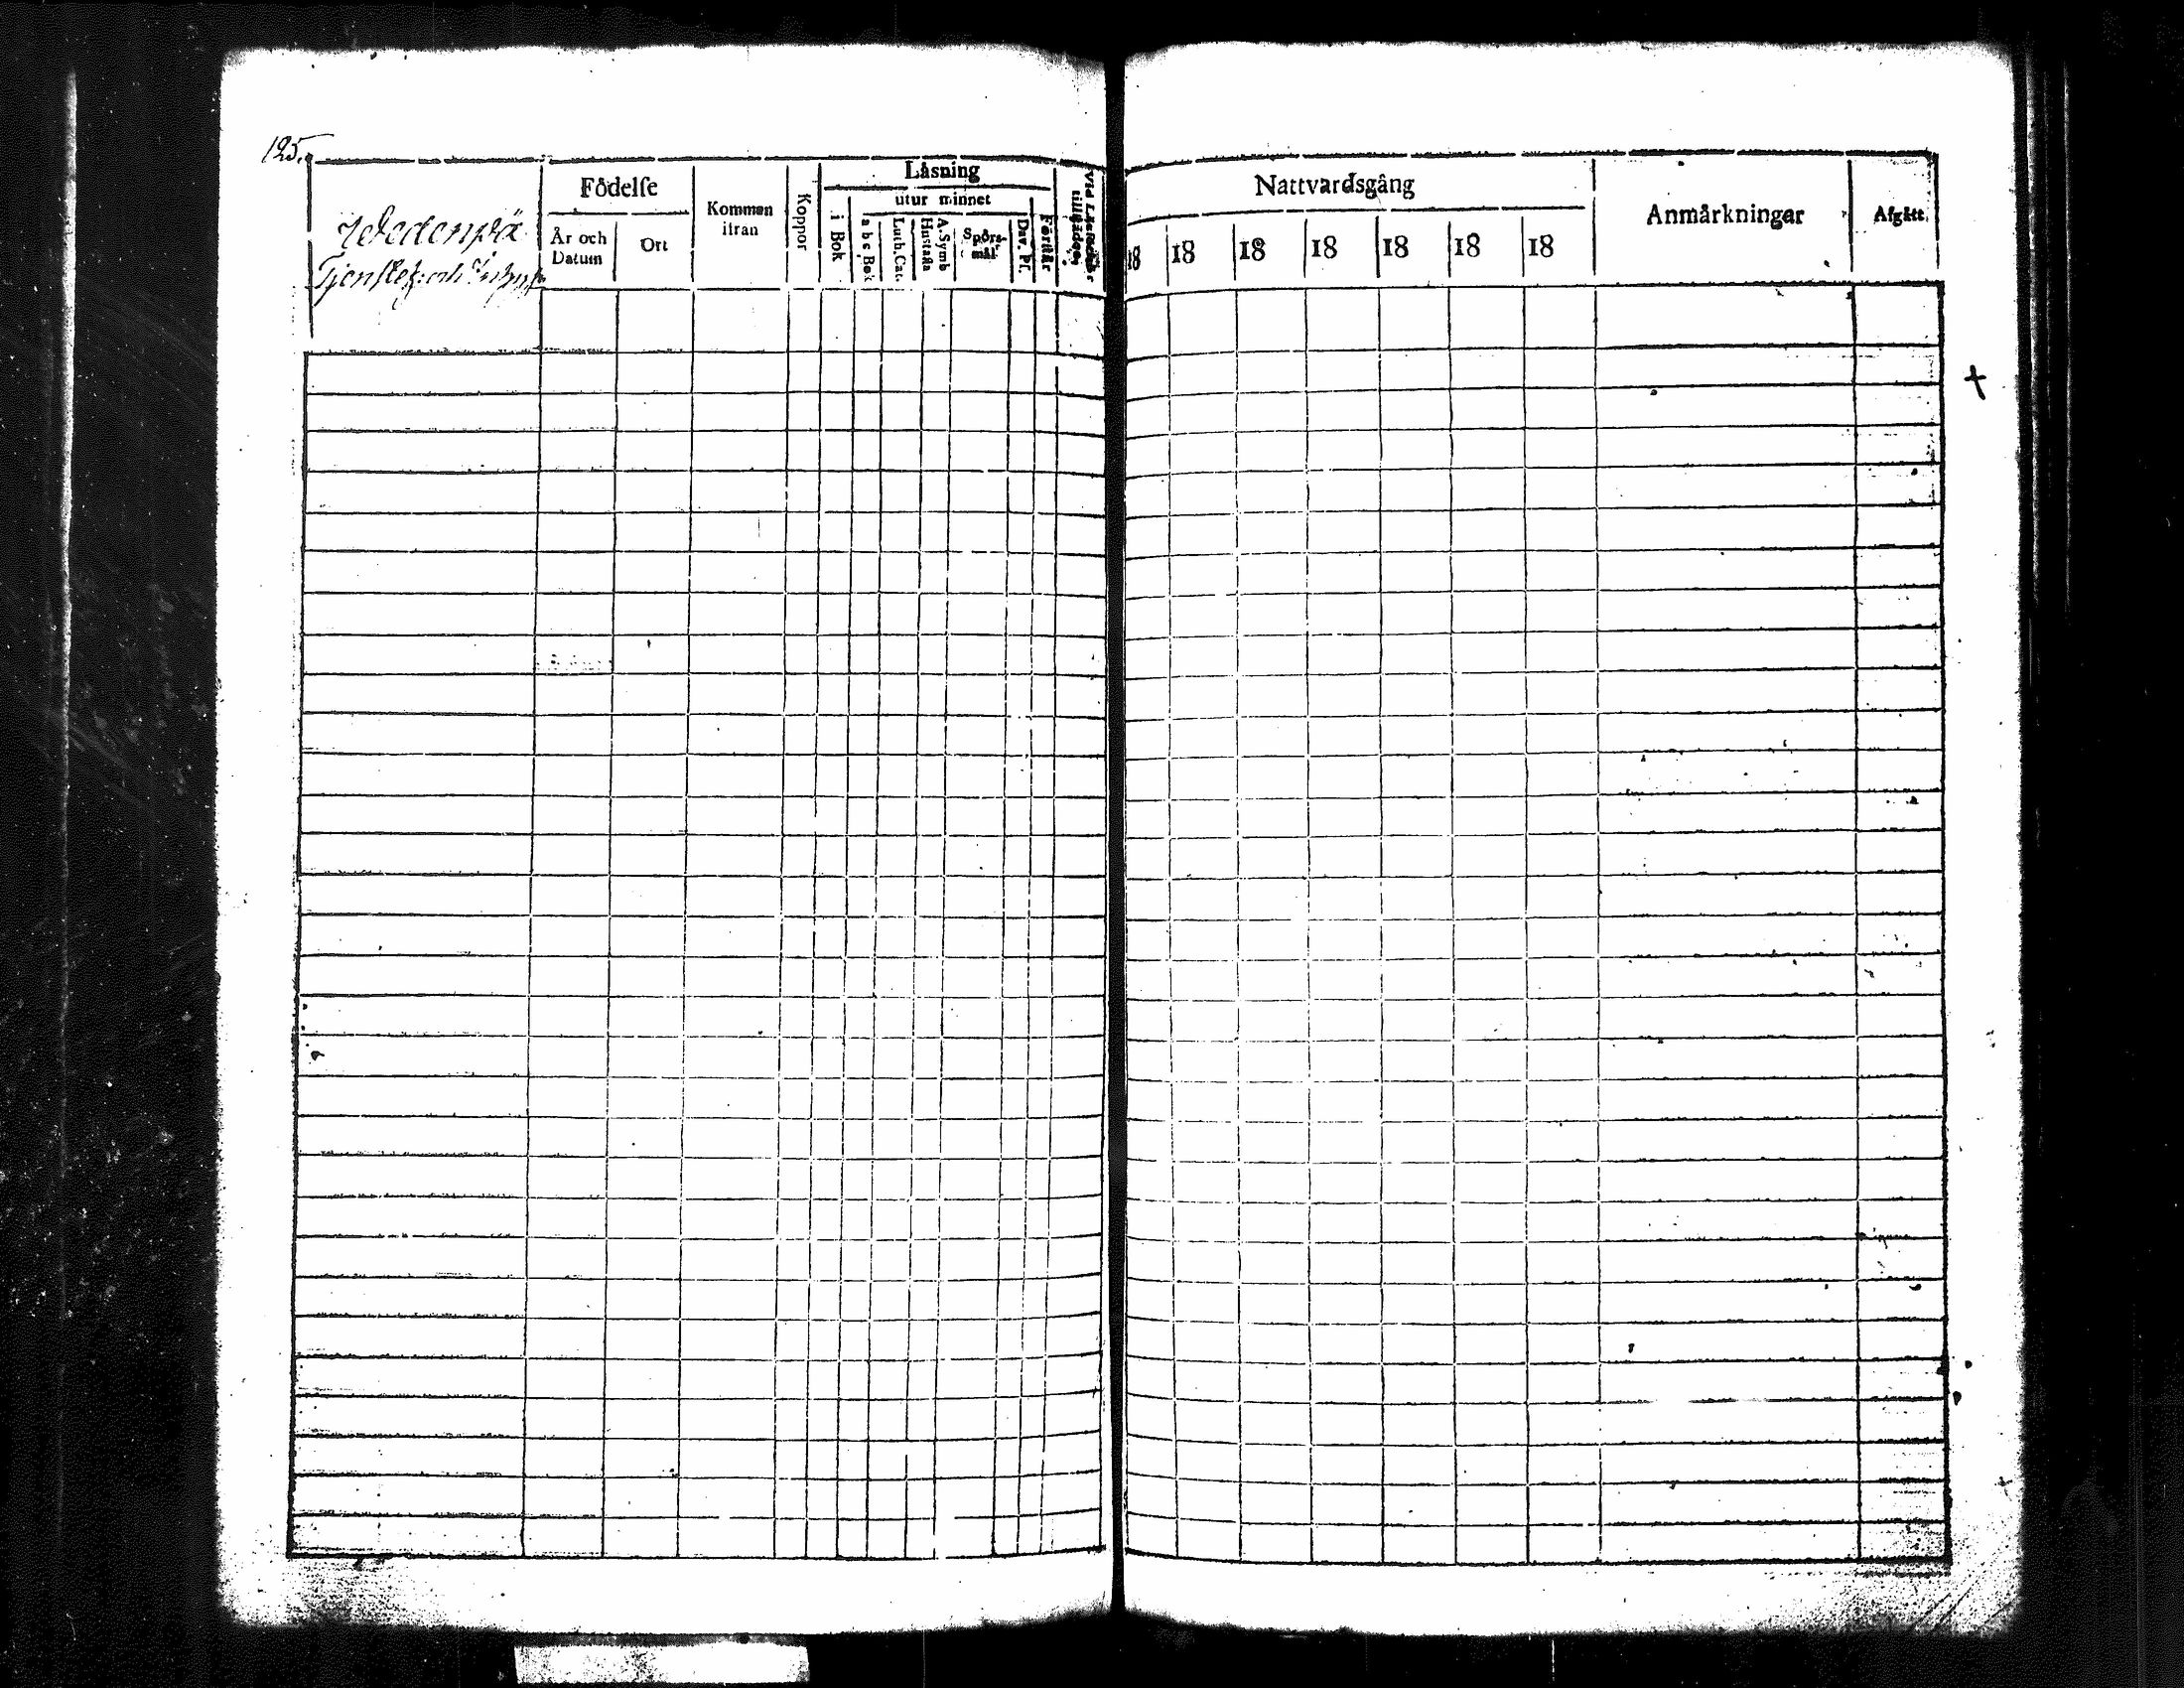 125.
Wedenpä
Tjenstef: och
Födelse
År och Datum
Ort
Kommen ifran
Koppor
Läsning
i Bok
utur minnet
a b c Bok
Luth. Cat.
Hustafla
A. Symb
Spörsmål
Dav. Ps.
Förstår
Nattvardsgång
18 18 18 18 18 18 18
Anmärkningar
Afgått.